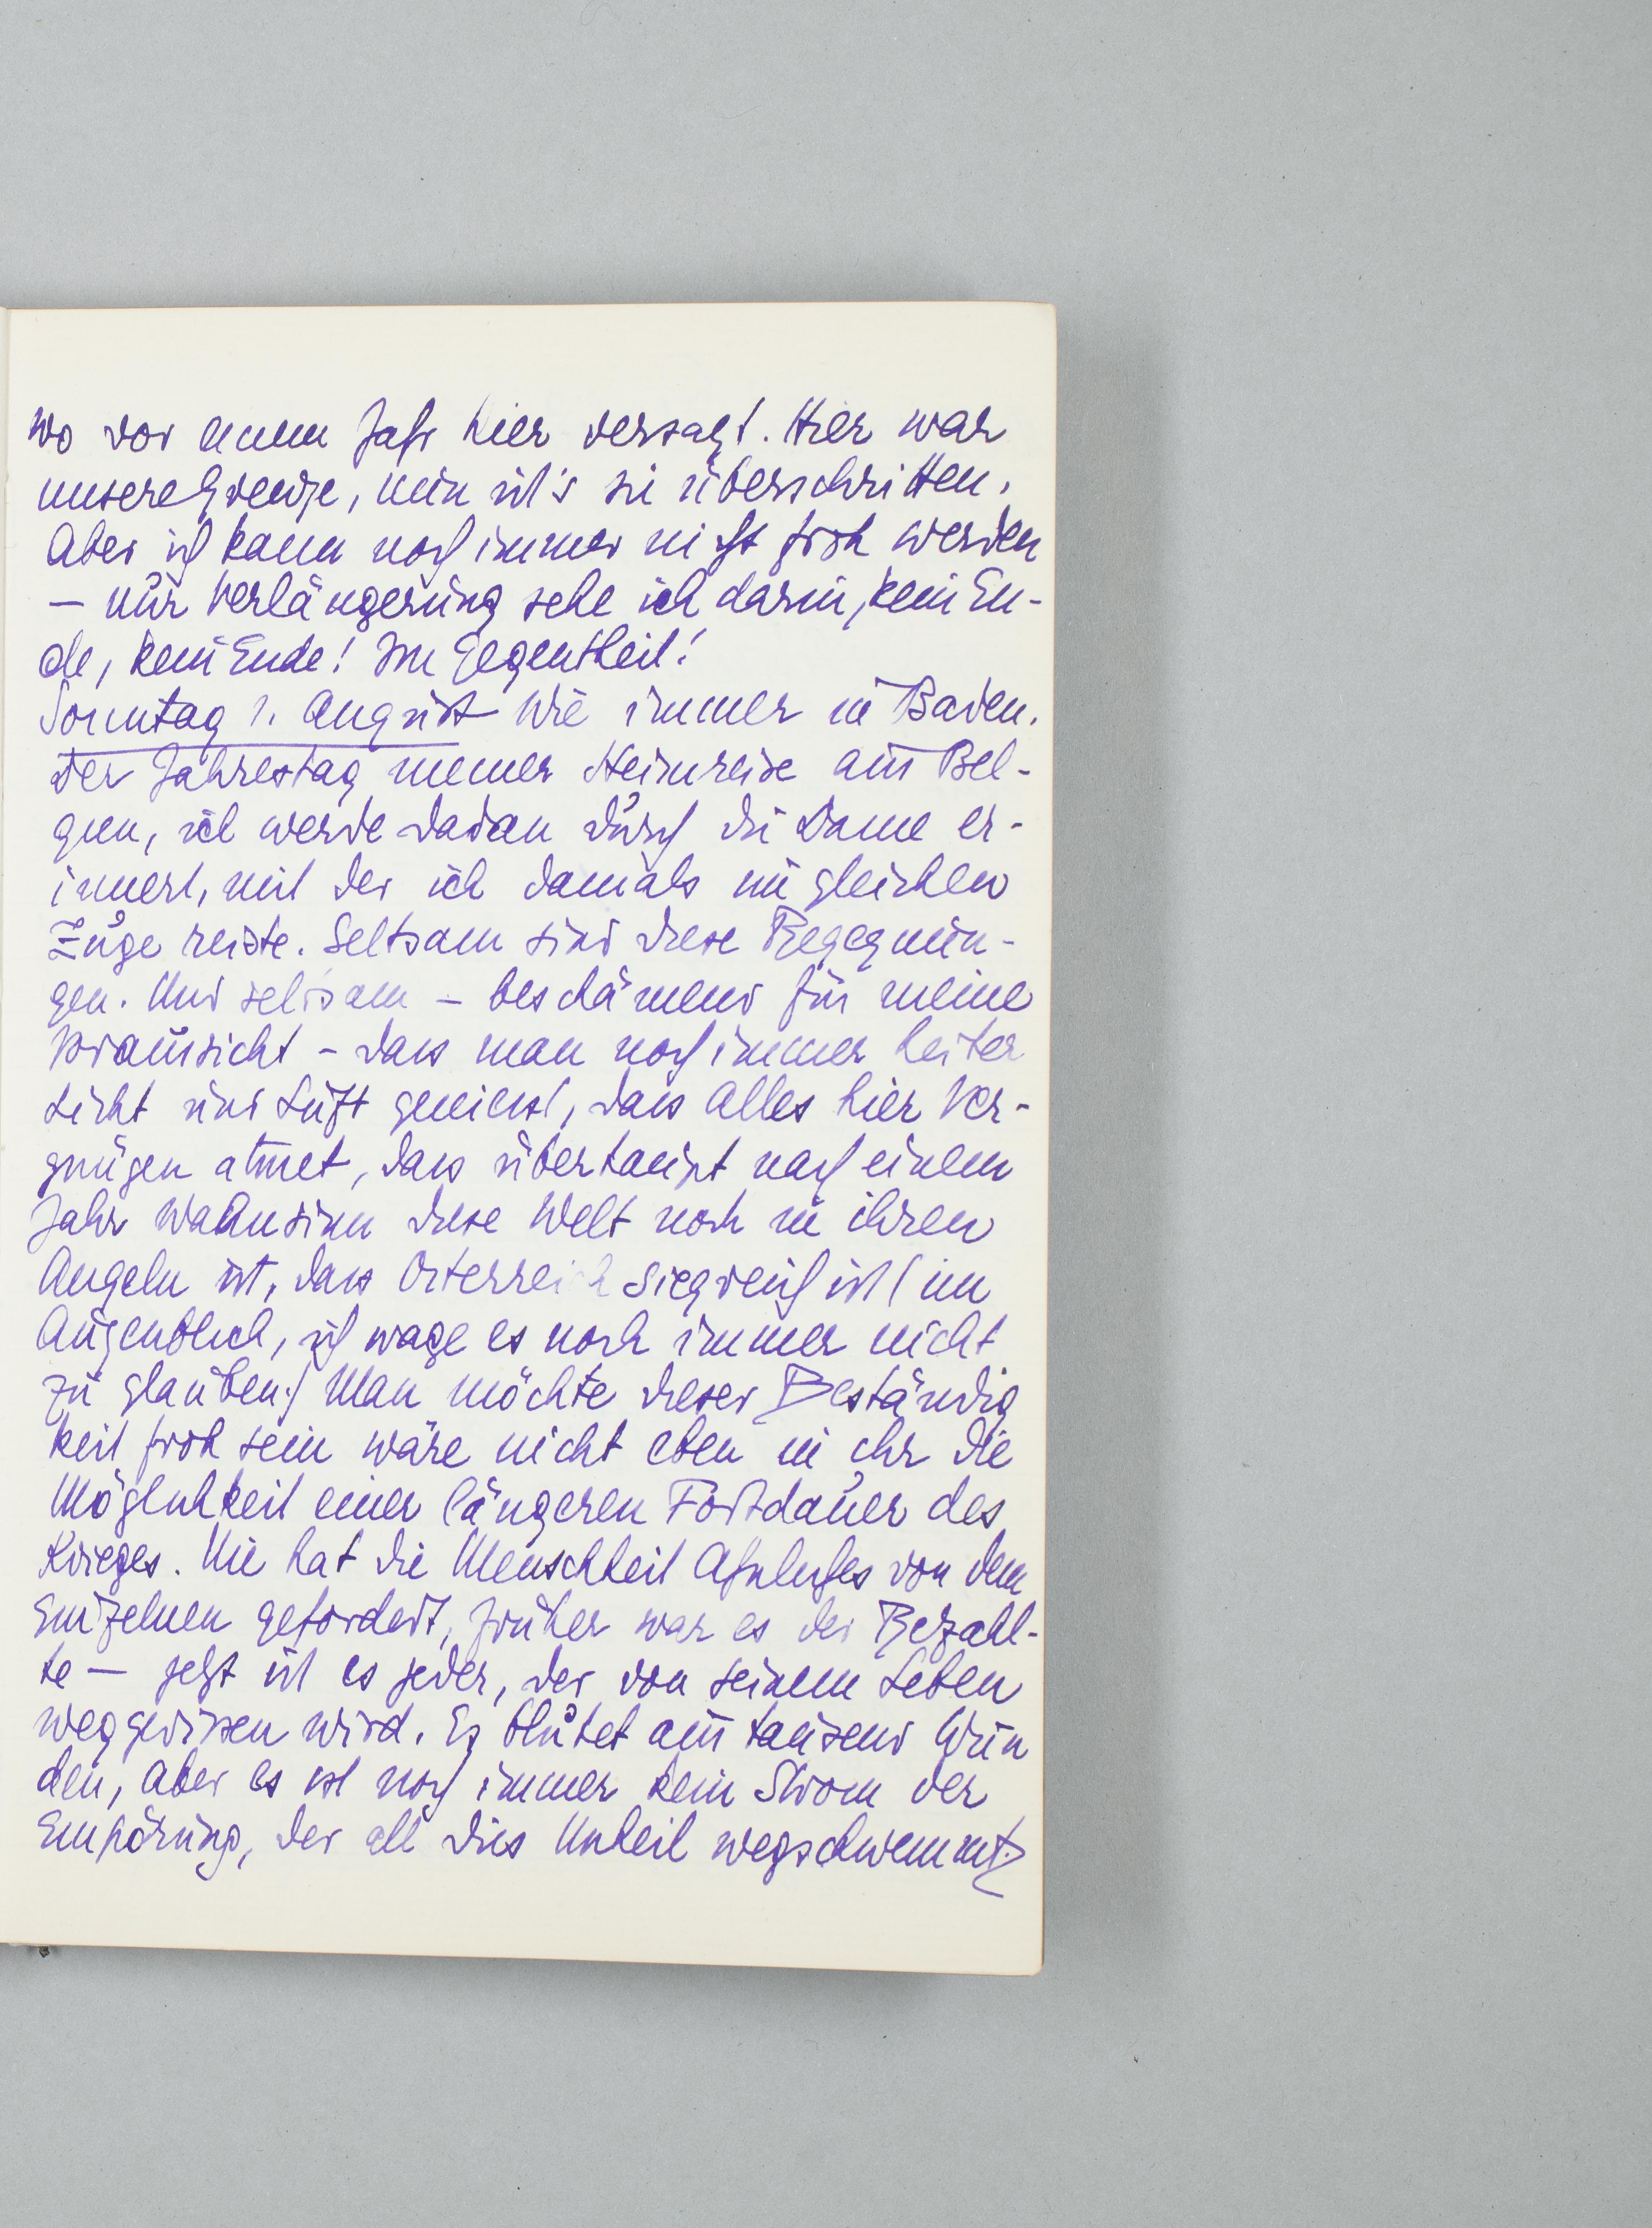 wo vor einem Jahr hier versagt. Hier war
unsere Grenze, nun ist's sie überschritten.
Aber ich kann noch immer nicht froh werden
– nur Verlängerung sehe ich darin, kein En-
de, kein Ende! Im Gegentheil!
Sonntag 1. August Wie immer in Baden.
Der Jahrestag meiner Heimreise aus Bel-
gien, ich werde daran durch die Dame er-
innert, mit der ich damals im gleichen
Zuge reiste. Seltsam sind diese Begegnun-
gen. Und seltsam – beschämend für meine
Voraussicht – dass man noch immer heiter
Licht und Luft geniesst, dass Alles hier Ver-
gnügen atmet, dass überhaupt nach einem
Jahr Wahnsinn diese Welt noch in ihren
Angeln ist, dass Österreich siegreich ist (im
Augenblick, ich wage es noch immer nicht
zu glauben.) Man möchte dieser Beständig
keit froh sein wäre nicht eben in ihr die
Möglichkeit einer längeren Fortdauer des
Krieges. Nie hat die Menschheit Ähnliches von dem
Einzelnen gefordert, früher war es der Bezahl-
te – jetzt ist es jeder, der von seinem Leben
weggerissen wird. Es blutet aus tausend Wun
den, aber es ist noch immer kein Strom der
Empörung, der all dies Unheil wegschwemmt.